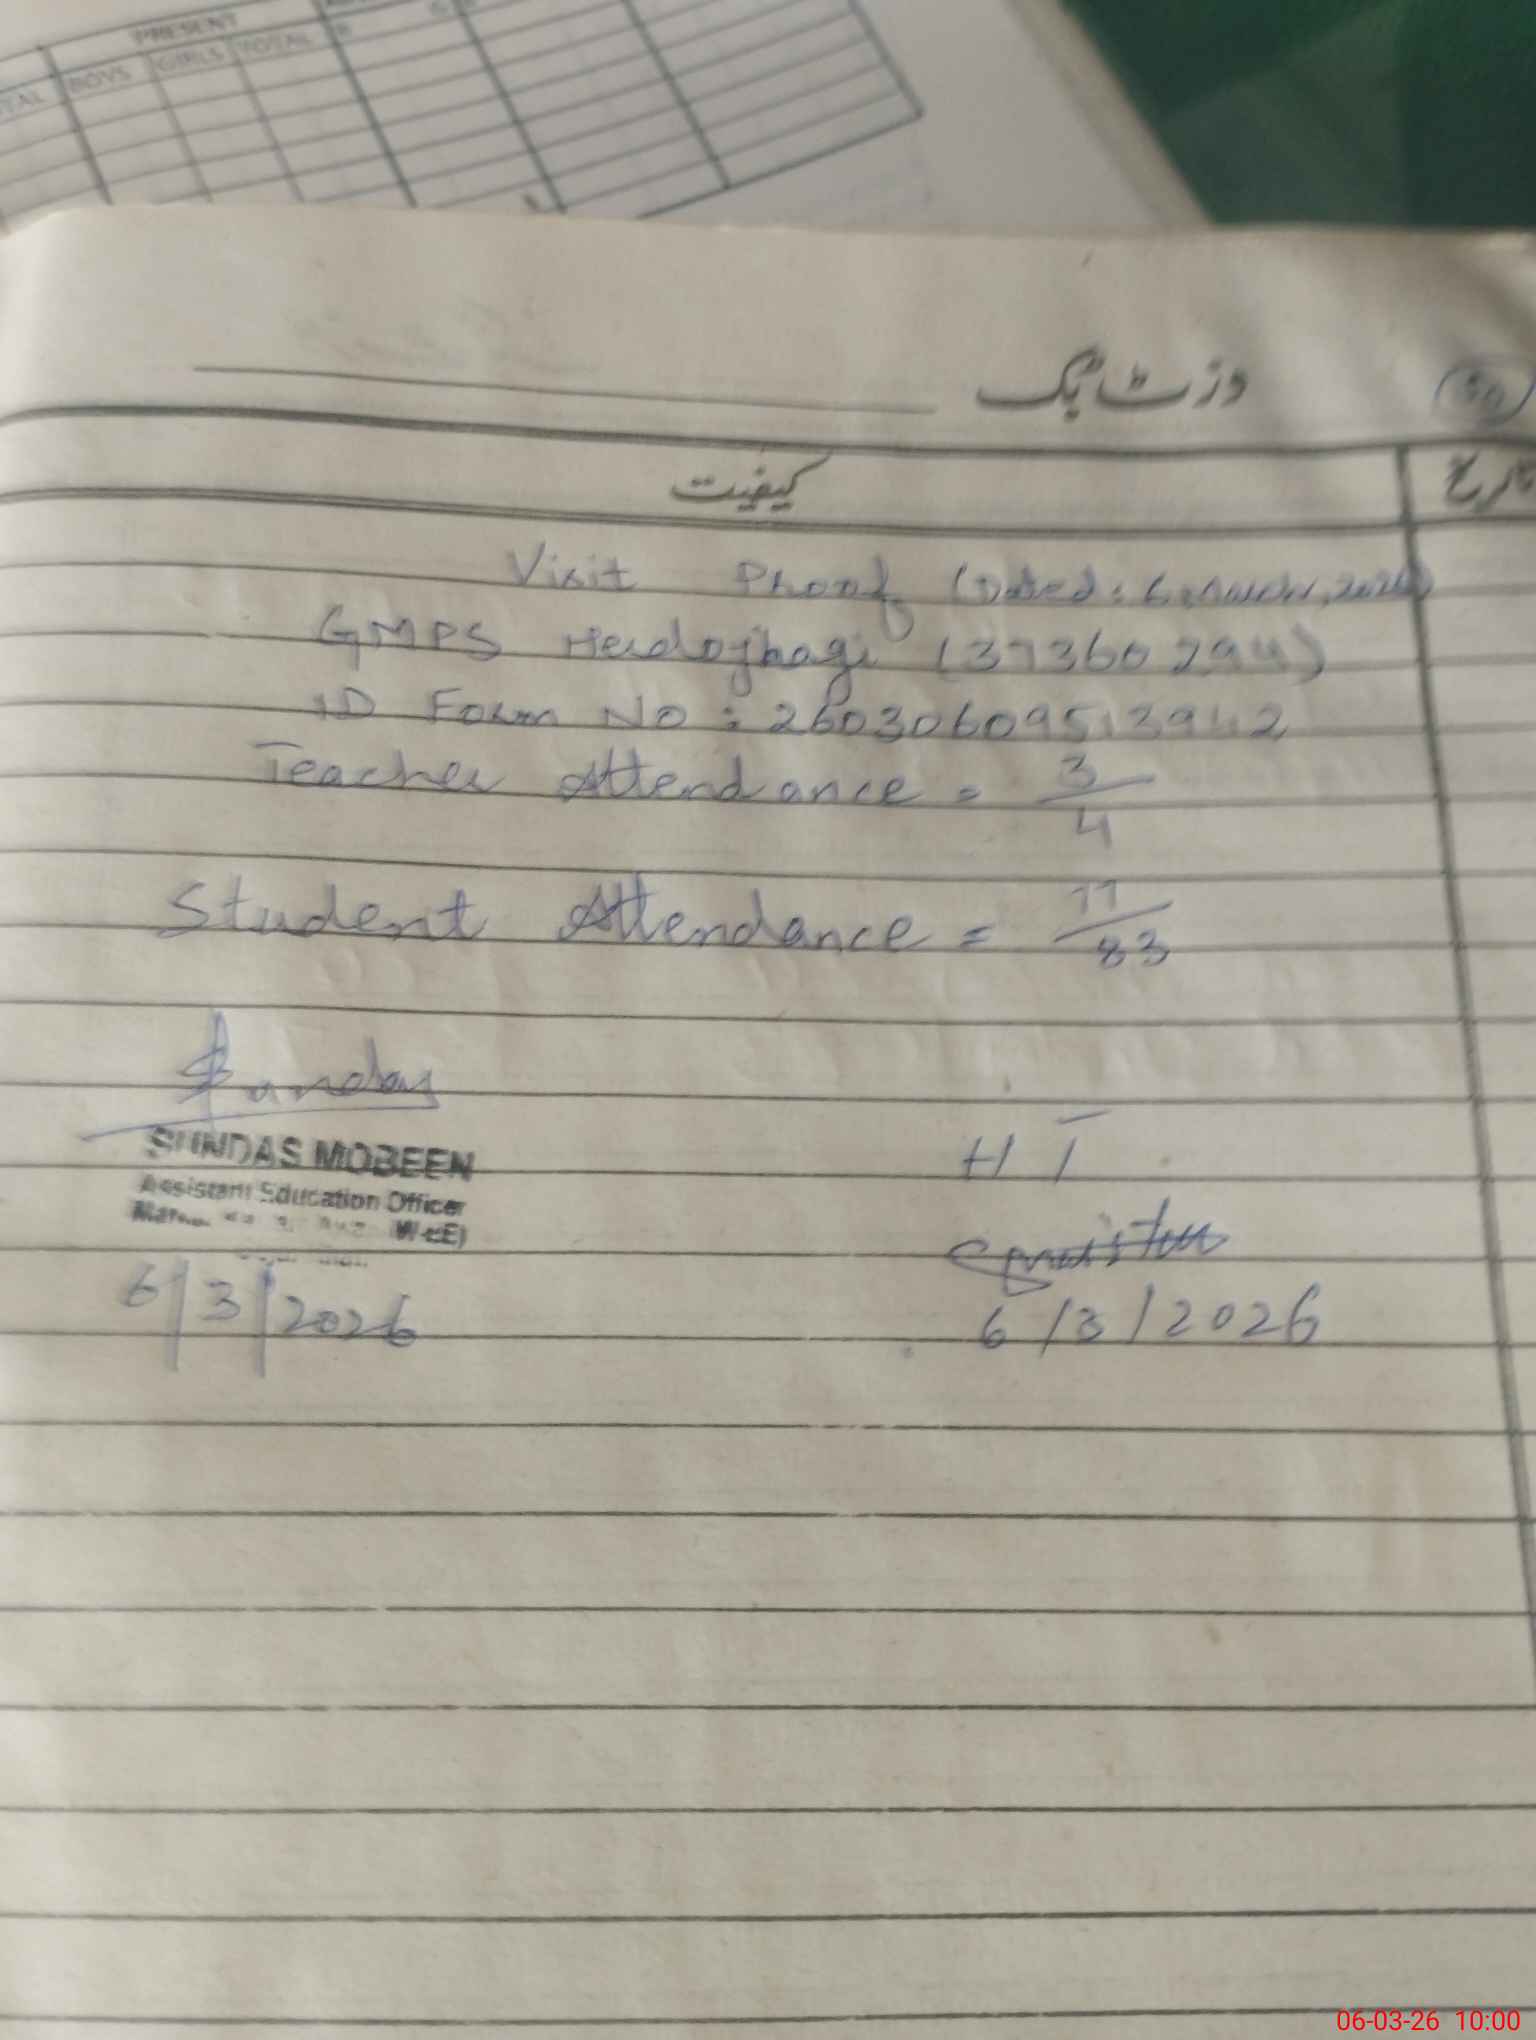 PRESENT
TOTAL BOYS GIRLS TOTAL
وزٹ بک
50
کیفیت
تاریخ
Visit Proof (Dated: 6, March, 2026)
GMPS (37360294)
ID Form No: 26030609513942
Teacher Attendance = 3/4
Student Attendance = 77/83
Sundas
SUNDAS MOBEEN
Assistant Education Officer
(W-EE)
6/3/2026
HT
6/3/2026
06-03-26 10:00